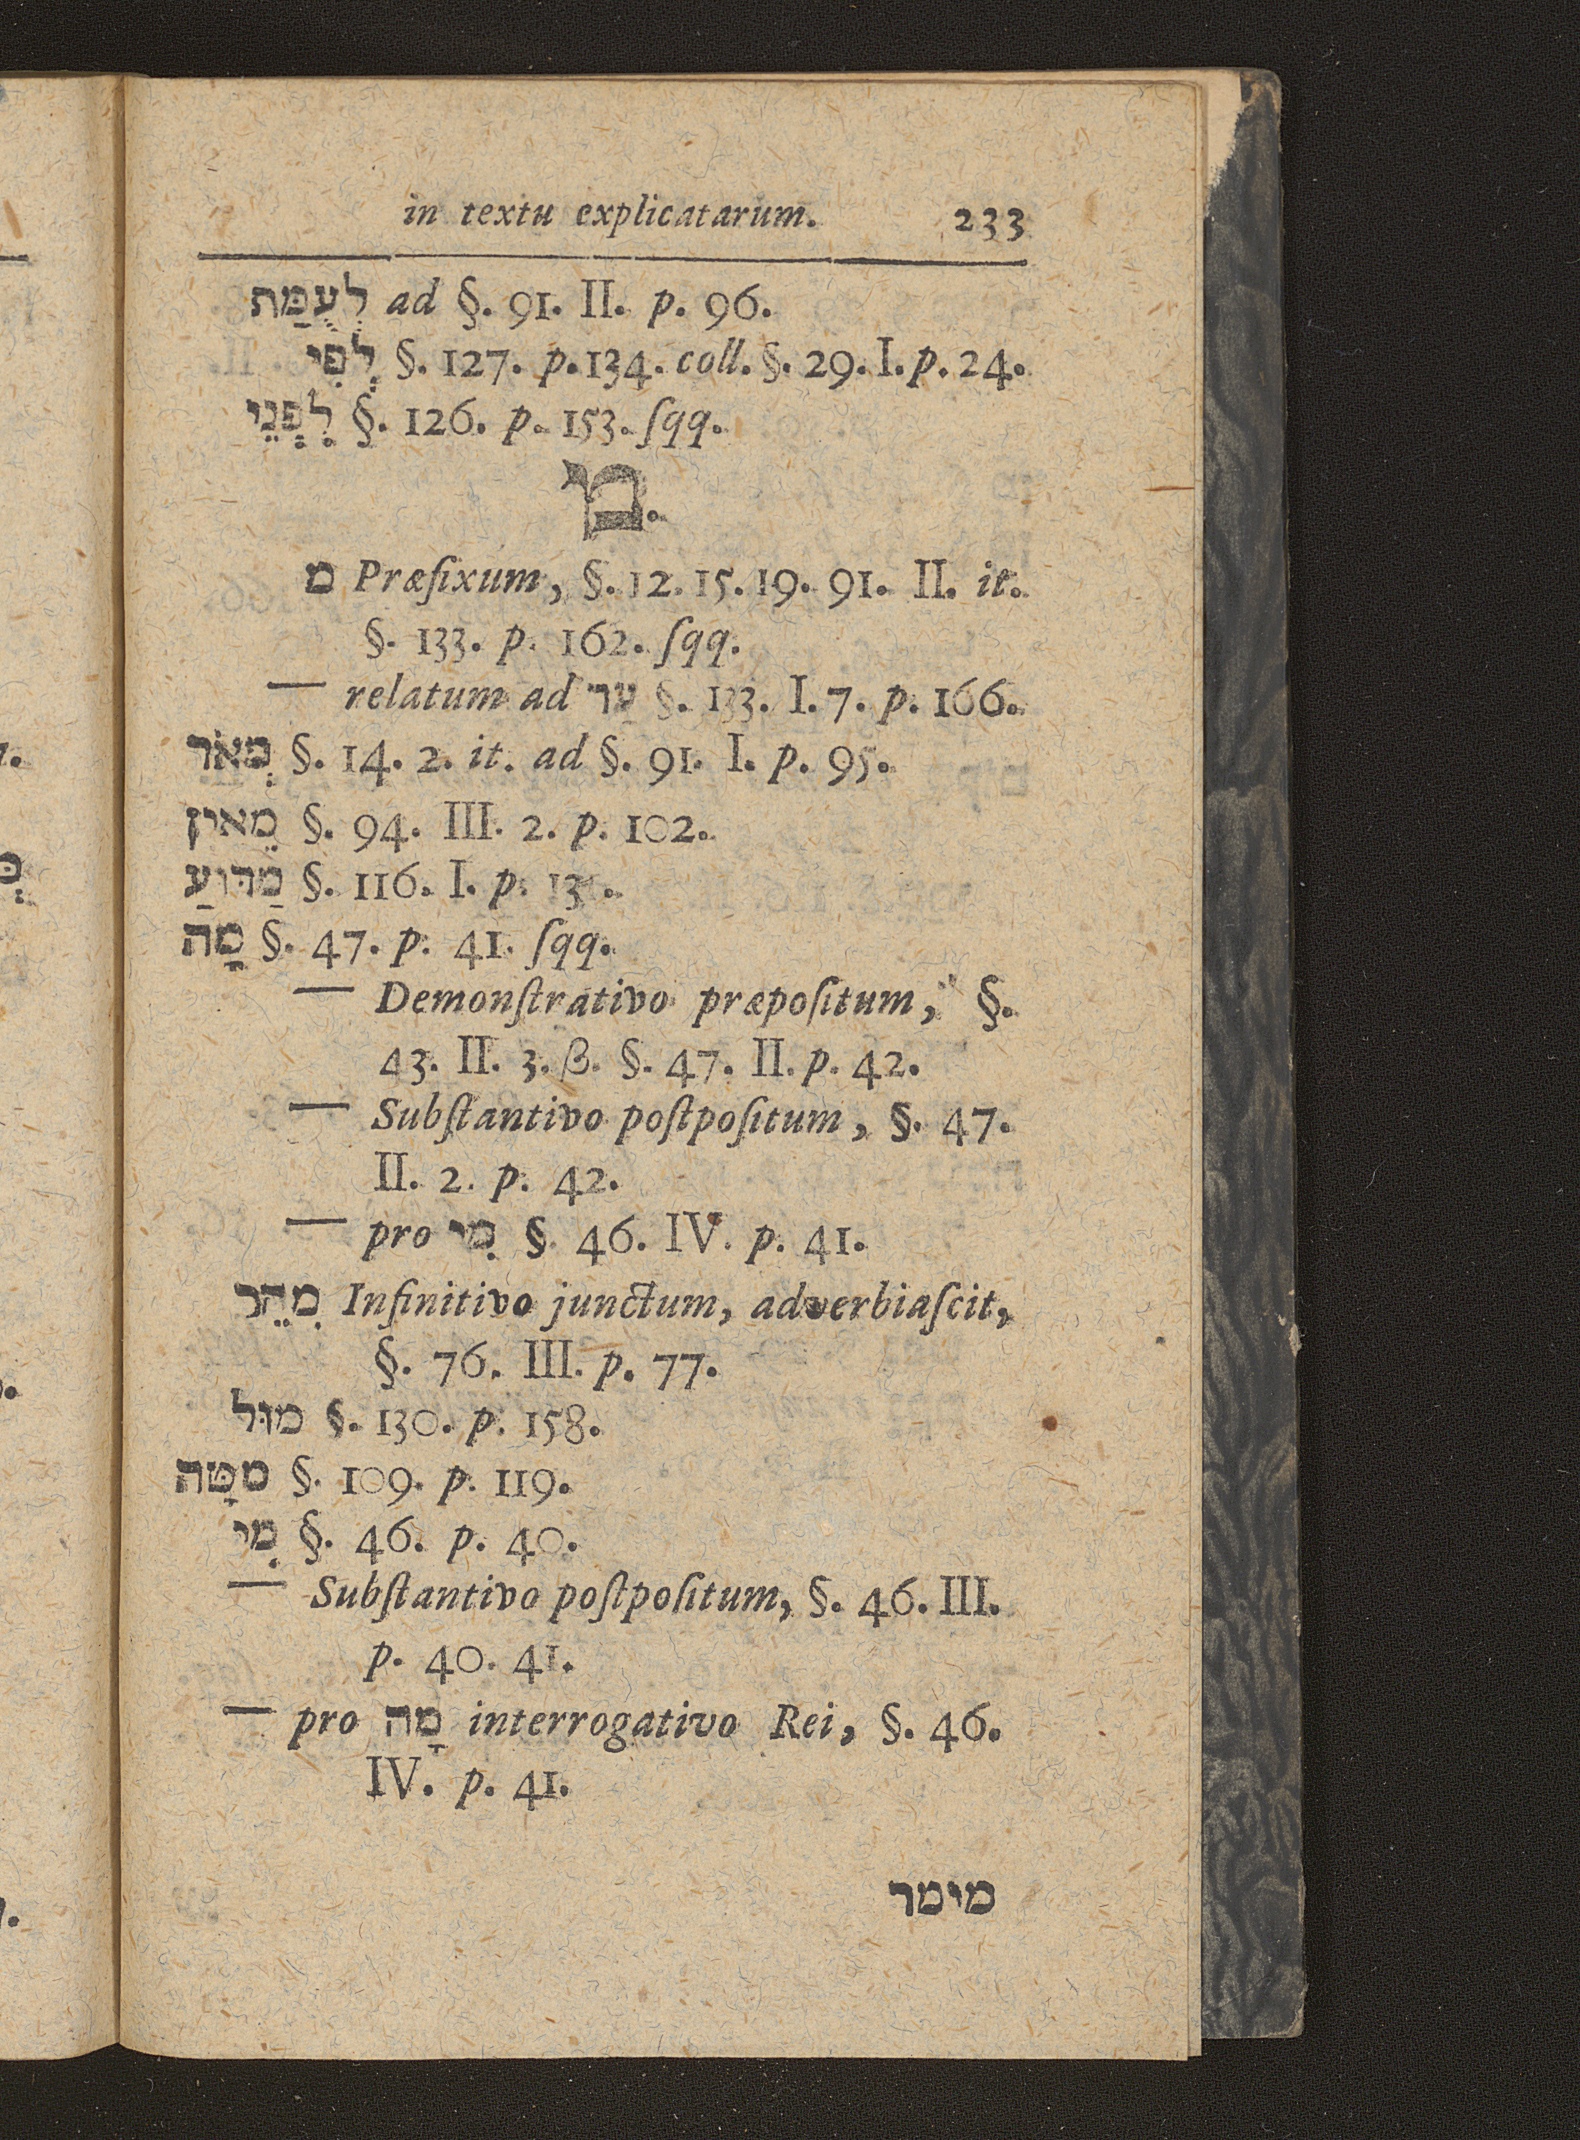 in textu explicatarum. 233
לְעֻמַּת ad §. 91. II. p. 96.
לְפִי §. 127. p. 134. coll. §. 29. I. p. 24.
לִפְנֵי §. 126. p. 153. ſqq.
מ.
מ Præfixum, §. 12. 15. 19. 91. II. it.
§. 133. p. 162. ſqq.
— relatum ad עַד §. 133. I. 7. p. 166.
מְאֹד §. 14. 2. it. ad §. 91. I. p. 95.
מֵאין §. 94. III. 2. p. 102.
מַדּוּעַ §. 116. I. p.
מָה §. 47. p. 41. ſqq.
— Demonſtrativo præpoſitum, §.
43. II. 3. β. §. 47. II. p. 42.
— Subſtantivo poſtpoſitum, §. 47.
II. 2. p. 42.
— pro מִי §. 46. IV. p. 41.
מִהֵר Infinitivo junctum, adverbiaſcit,
§. 76. III. p. 77.
מוּל §. 130. p. 158.
מטָּה §. 109. p. 119.
מִי §. 46. p. 40.
— Subſtantivo poſtpoſitum, §. 46. III.
p. 40. 41.
— pro מָה interrogativo Rei, §. 46.
IV. p. 41.
מימר